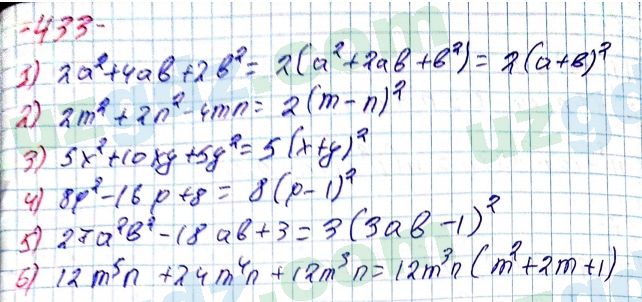 -433-
1) 2a²+4ab+2b²= 2(a²+2ab+b²)= 2(a+b)²
2) 2m²+2n²-4mn= 2(m-n)²
3) 5x²+10xy+5y²= 5(x+y)²
4) 8p²-16p+8= 8(p-1)²
5) 27a²b²-18ab+3= 3(3ab-1)²
6) 12m⁵n+24m⁴n+12m³n= 12m³n(m²+2m+1)